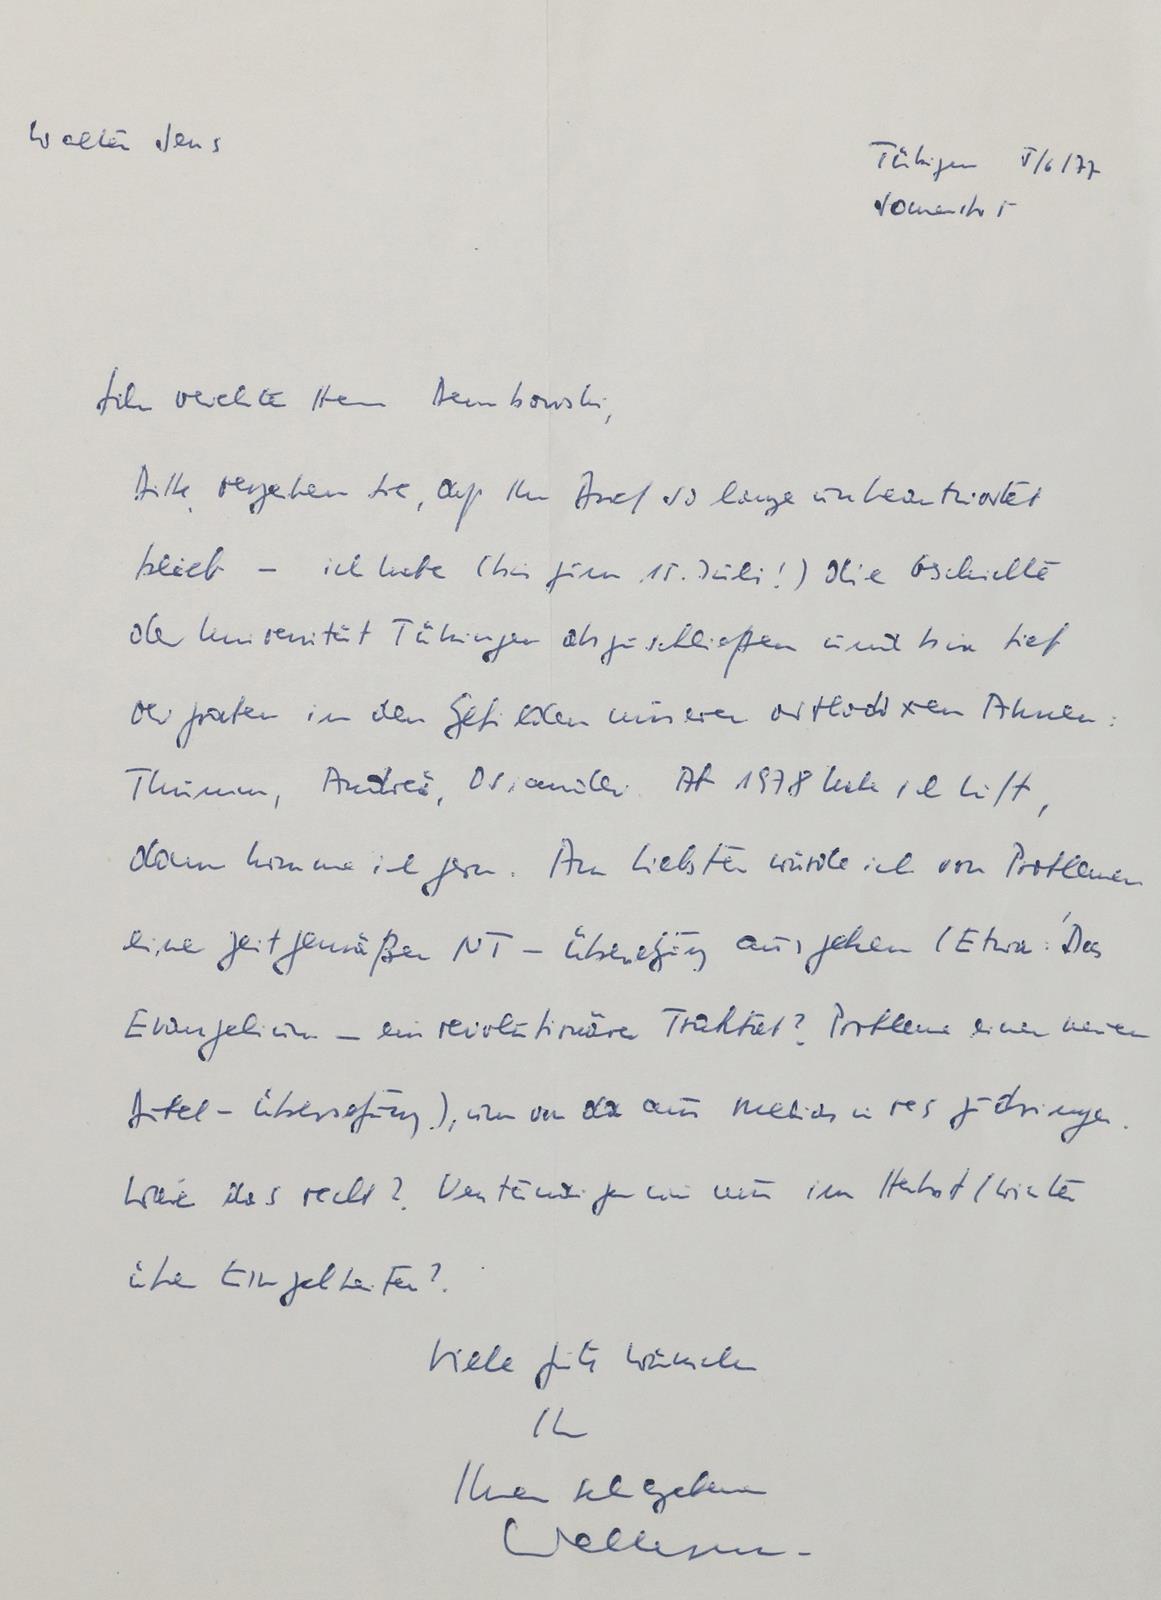 Walter Jens
Tübingen 5/6/77
Sonnenstr 5
Sehr verehrter Herr Dembowski,
Bitte vergeben Sie, daß Ihr Brief so lange unbeantwortet
blieb – ich habe (bis zum 15. Juli!) die Geschichte
der Universität Tübingen abzuschließen und bin tief
vergraben in den Gefilden unserer orthodoxen Ahnen:
Thumm, Andreä, Osiander. Ab 1978 habe ich Luft,
dann komme ich gern. Am liebsten würde ich von Problemen
einer zeitgemäßen NT-Übersetzung ausgehen (Etwa: Das
Evangelium – ein revolutionärer Traktat? Probleme einer neuen
Bibel-Übersetzung), um von da aus medias in res zu dringen.
Wäre das recht? Verständigen wir uns im Herbst/Winter
über Einzelheiten?
Viele gute Wünsche
Ihr
Ihnen sehr ergebener
Walter Jens